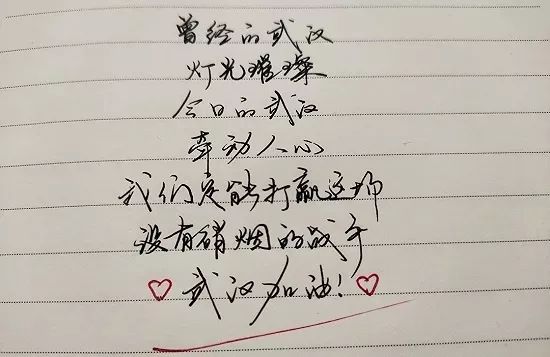 曾经的武汉
灯光璀璨
今日的武汉
牵动人心
我们定能打赢这场
没有硝烟的战争
武汉加油!